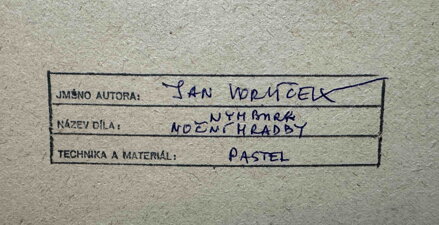 JMÉNO AUTORA: JAN VORLÍČEK
NYMBURK
NÁZEV DÍLA: NOČNÍ HRADBY
TECHNIKA A MATERIÁL: PASTEL